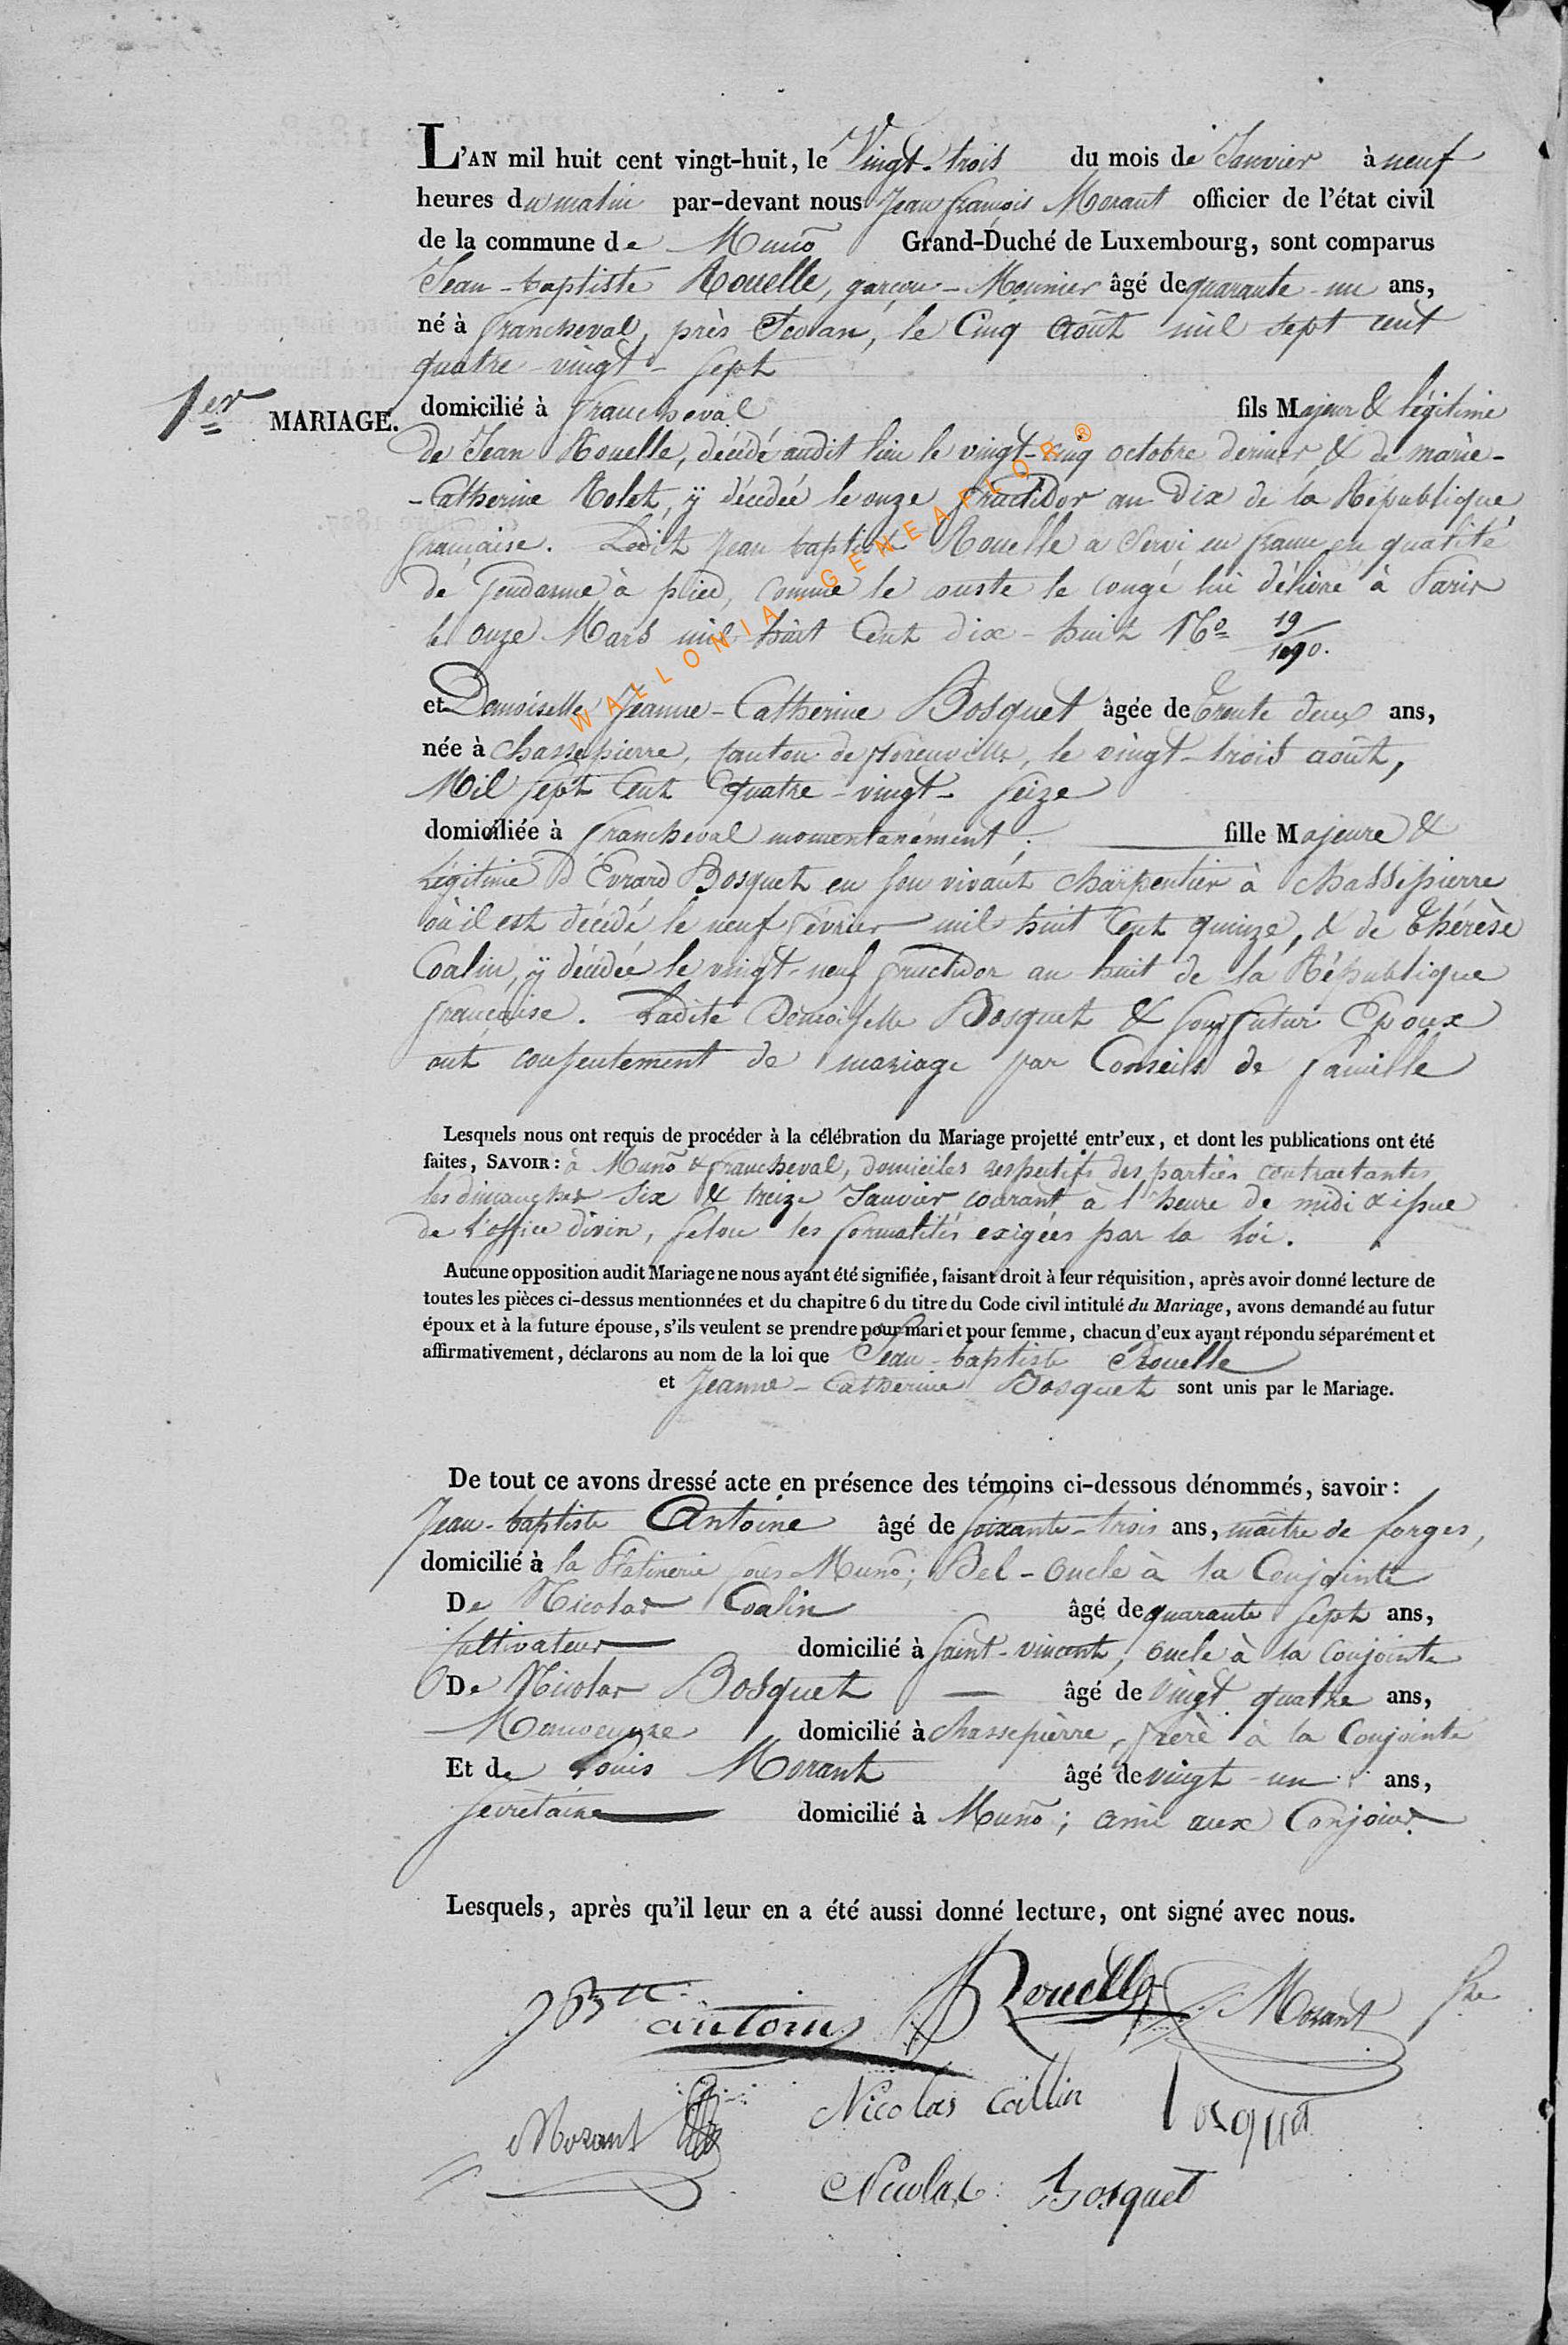 L'AN mil huit cent vingt-huit, le Vingt-trois du mois de Janvier à neuf
heures du matin par-devant nous Jean françois Morant officier de l'état civil
de la commune de Muno Grand-Duché de Luxembourg, sont comparus
Jean-baptiste Rouelle, garçon-Meunier âgé de quarante-un ans,
né à francheval, près Sedan, le Cinq Août mil sept cent
quatre-vingt-sept
1er MARIAGE. domicilié à francheval fils Majeur & légitime
de Jean Rouelle, décédé audit lieu le vingt-cinq octobre dernier, & de marie-
-Catherine Rolet, ÿ décédée le onze fructidor an Dix de la République
française. Ledit Jean baptiste Rouelle a servi en france en qualité
de Gendarme à pied, comme le conste le congé lui délivré à Paris
le onze Mars mil huit Cent dix-huit No 19/1090.
et Demoiselle Jeanne-Catherine Bosquet âgée de trente deux ans,
née à Chassepierre, Canton de florenville, le vingt-trois août,
Mil sept Cent Quatre-vingt-seize
domiciliée à francheval momentanément; fille Majeure &
Légitime d'Evrard Bosquet en son vivant charpentier à Chassepierre
où il est décédé le neuf février mil huit Cent quinze, & de Thérèse
Coalin, ÿ décédée le vingt-neuf fructidor an huit de la République
française. Ladite Demoiselle Bosquet & son futur Epoux
ont consentement de mariage par Conseils de famille
Lesquels nous ont requis de procéder à la célébration du Mariage projetté entr'eux, et dont les publications ont été
faites, SAVOIR: à Muno & francheval, domiciles respectifs des parties contractantes
les dimanches six & treize Janvier courant à l'heure de midi & issue
de l'office divin, selon les formalités exigées par la loi.
Aucune opposition audit Mariage ne nous ayant été signifiée, faisant droit à leur réquisition, après avoir donné lecture de
toutes les pièces ci-dessus mentionnées et du chapitre 6 du titre du Code civil intitulé du Mariage, avons demandé au futur
époux et à la future épouse, s'ils veulent se prendre pour mari et pour femme, chacun d'eux ayant répondu séparément et
affirmativement, déclarons au nom de la loi que Jean-baptiste Rouelle
et Jeanne-Catherine Bosquet sont unis par le Mariage.
De tout ce avons dressé acte en présence des témoins ci-dessous dénommés, savoir:
Jean-baptiste Antoine âgé de soixante-trois ans, maître de forges,
domicilié à la Platinerie sous Muno; Bel-oncle à la Conjointe
De Nicolas Coalin âgé de quarante sept ans,
Cultivateur domicilié à Saint-vincent, oncle à la Conjointe
De Nicolas Bosquet âgé de vingt quatre ans,
Manoeuvre domicilié à Chassepierre, frère à la Conjointe
Et de Louis Morant âgé de vingt-un ans,
secrétaire domicilié à Muno; ami aux Conjoints.
Lesquels, après qu'il leur en a été aussi donné lecture, ont signé avec nous.
JBte antoine Rouelle Morant
Morant Nicolas Collin Bosquet
Nicolas Bosquet
WALLONIA-GENEAFLOR®